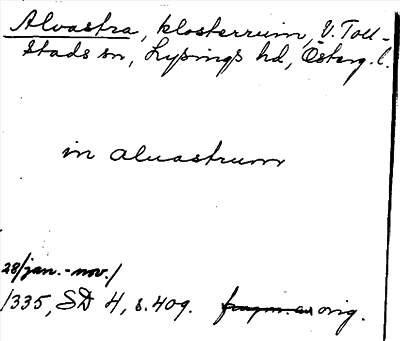 Alvastra, klosterruin, V. Toll-
stads sn, Lysings hd, Österg. l.
in aluastrum
28/jan.-nov./
1335, SD 4, s. 409. fragm. av orig.